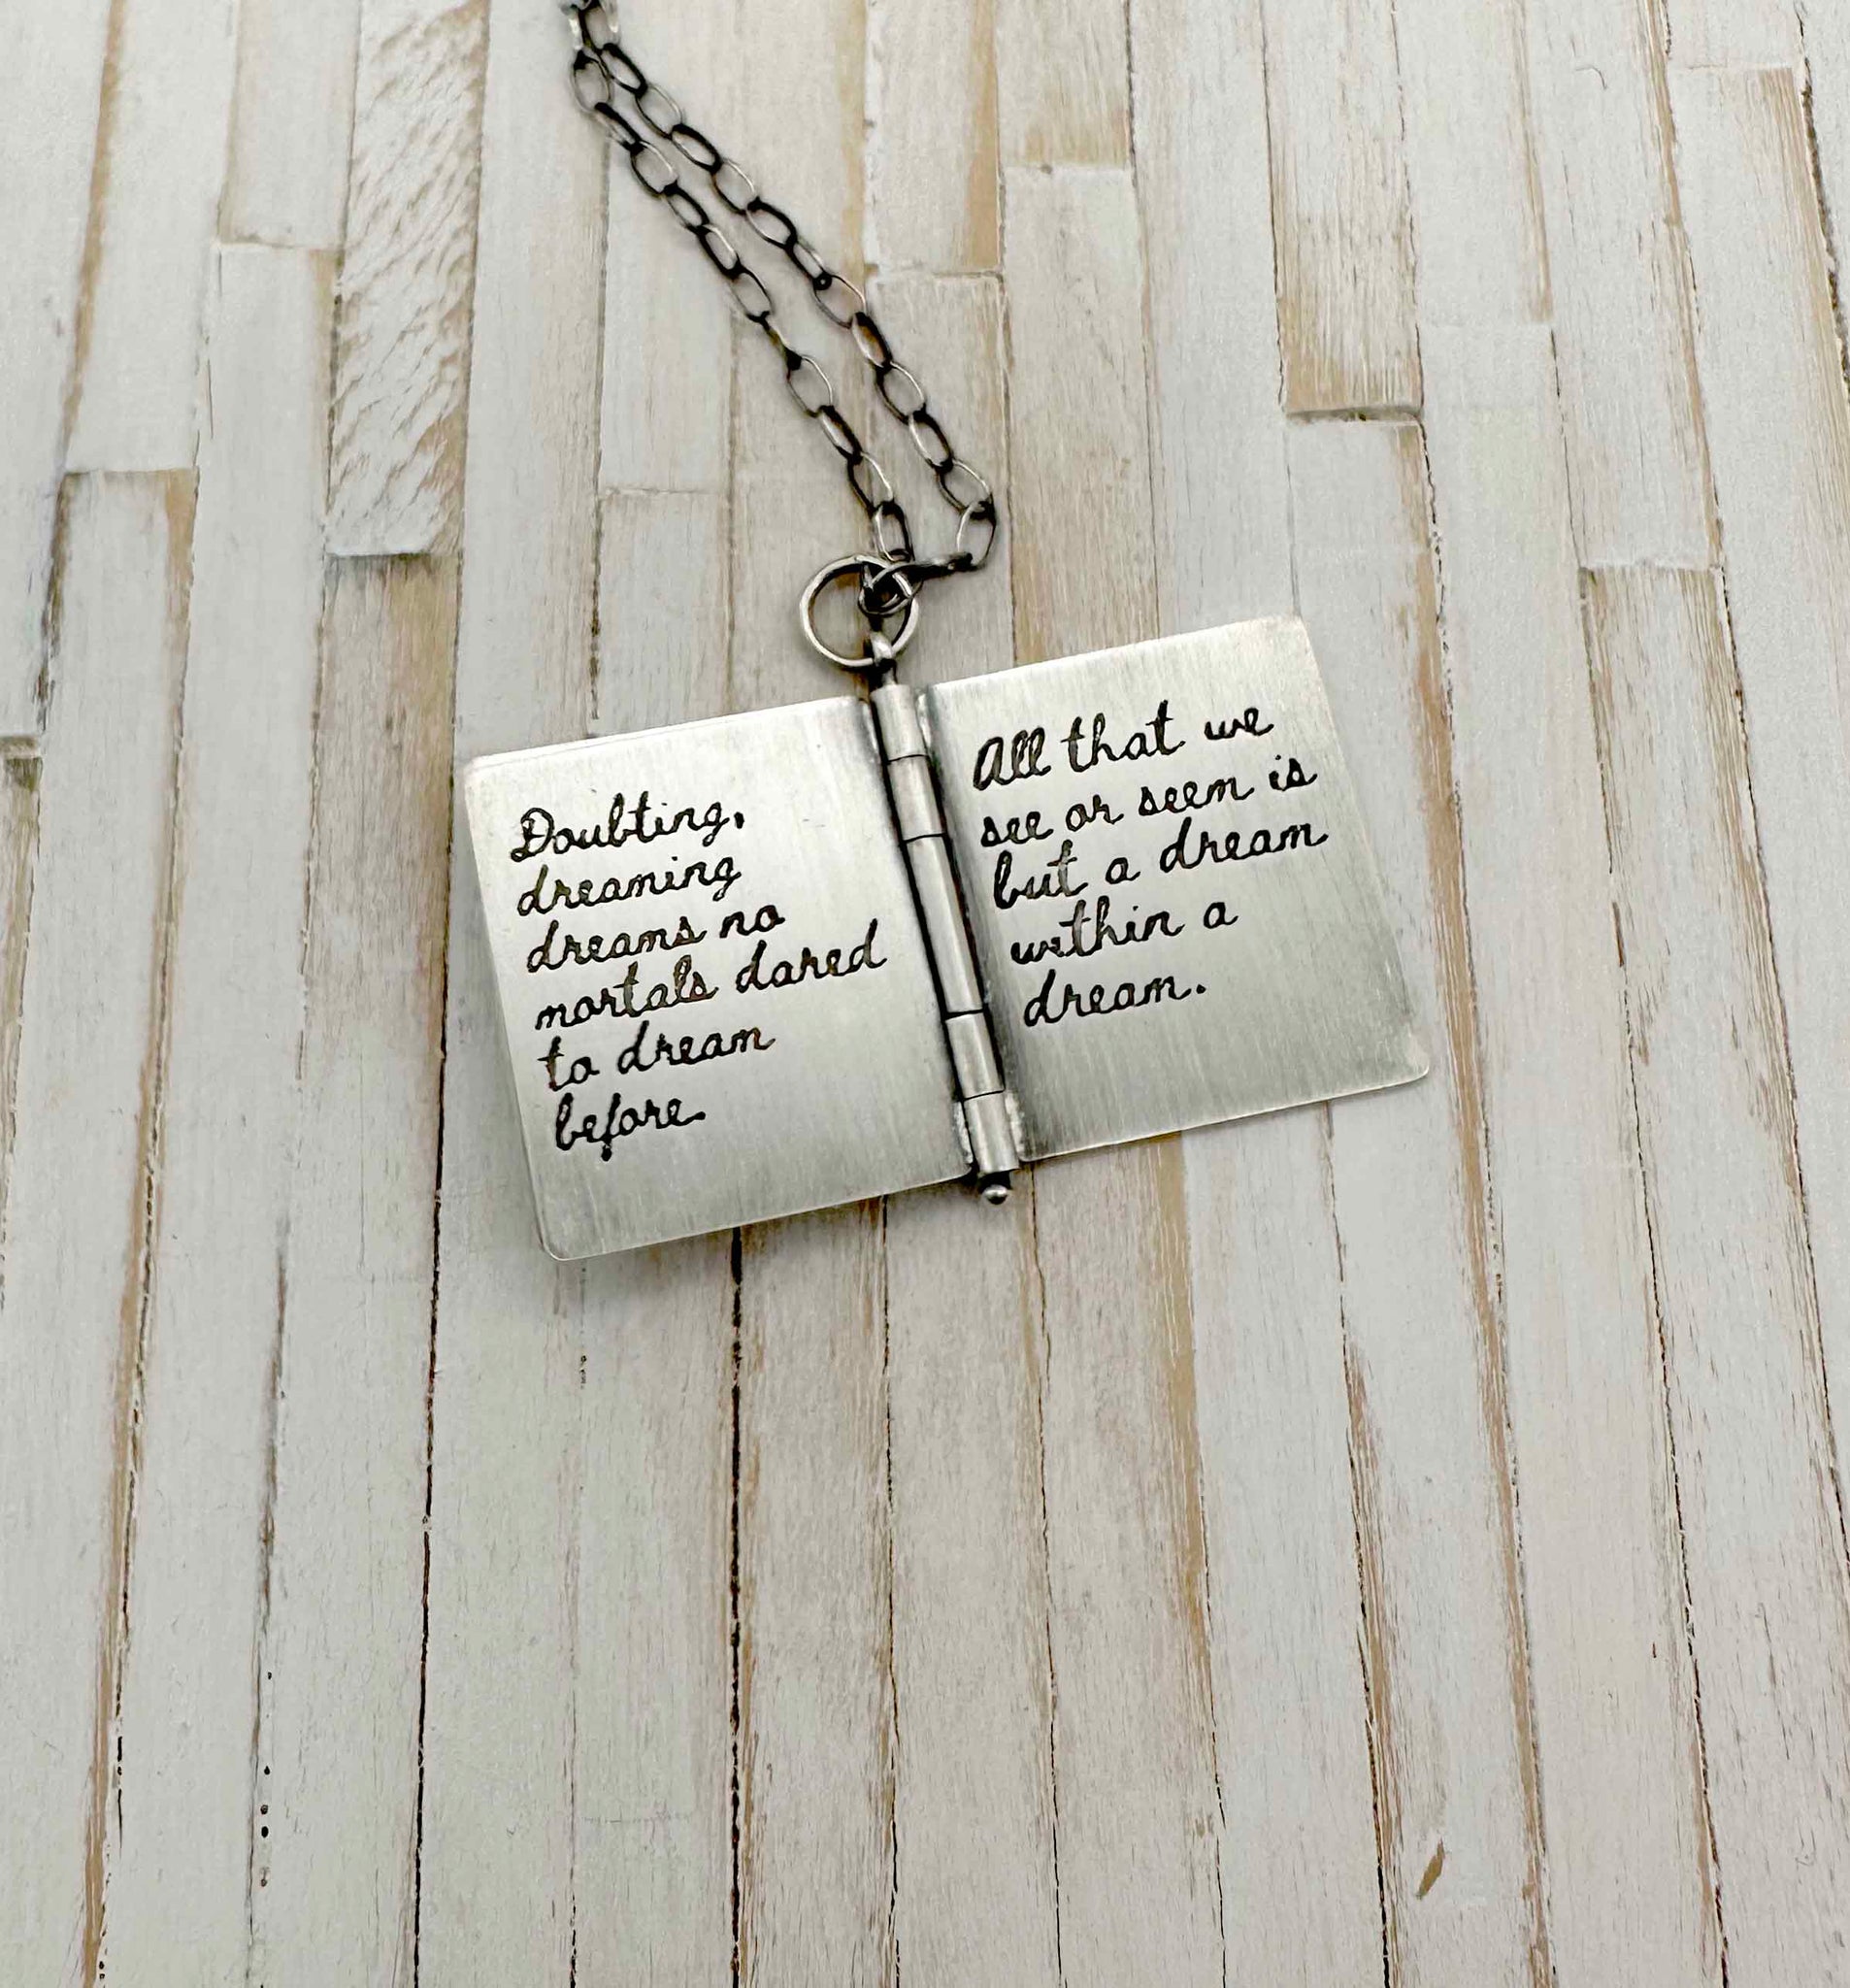 Doubting,
dreaming
dreams no
mortals dared
to dream
before.
All that we
see or seem is
but a dream
within a
dream.